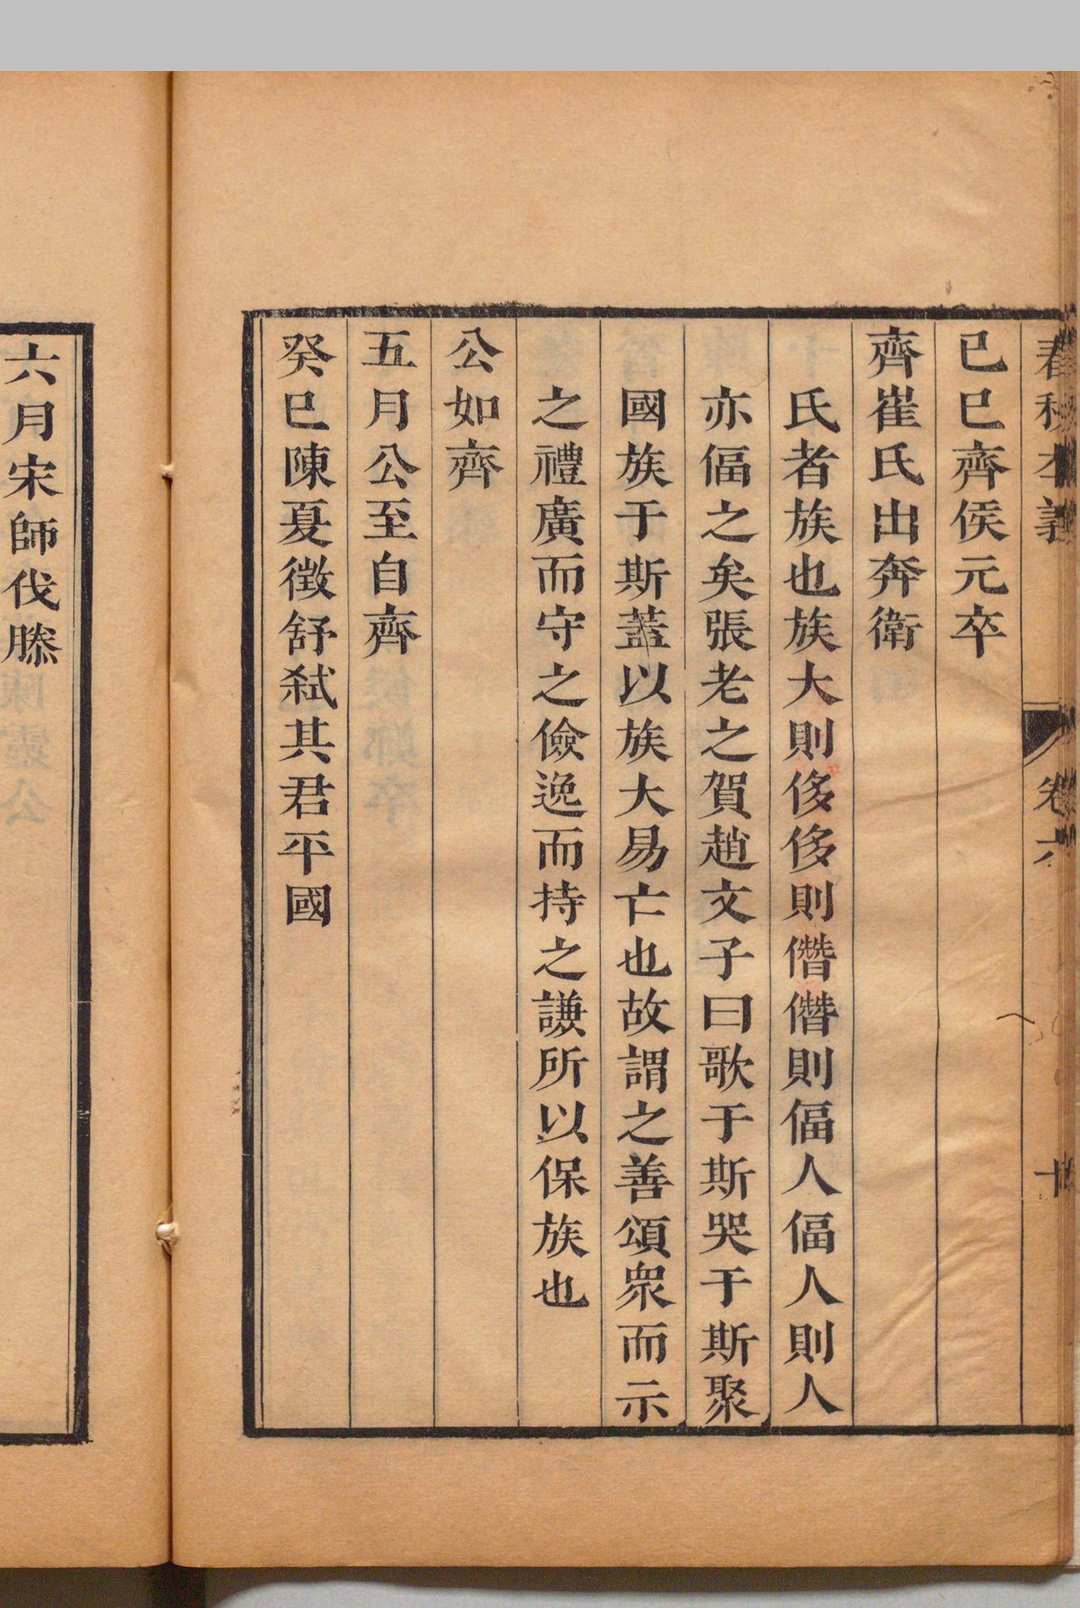 春秋本義 卷六 十
己巳齊侯元卒
齊崔氏出奔衛
氏者族也族大則侈侈則僭僭則偪人偪人則人
亦偪之矣張老之賀趙文子曰歌于斯哭于斯聚
國族于斯蓋以族大易亡也故謂之善頌衆而示
之禮廣而守之儉逸而持之謙所以保族也
公如齊
五月公至自齊
癸巳陳夏徵舒弒其君平國
六月宋師伐滕